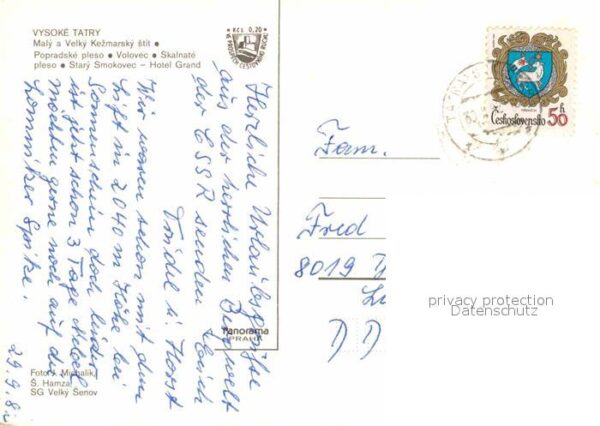 VYSOKÉ TATRY
Malý a Velký Kežmarský štít •
Popradské pleso • Volovec • Skalnaté
pleso • Starý Smokovec – Hotel Grand
Kčs 0,20
Herzliche Urlaubsgrüße
aus der herrlichen Bergwelt
der ČSSR senden Euch
Trudel u. Horst
Wir waren schon mit dem
Lift in 2040 m Höhe bei
Sonnenschein doch leider
ist jetzt schon 3 Tage Nebel
Möchten gerne noch auf die
Lomnitzer Spitze.
29.9.8
Panorama
PRAHA
Foto: J. Michalík,
Š. Hamza,
SG Velký Šenov
Československo
50 h
Fam.
Fred
8019
DD
privacy protection
Datenschutz